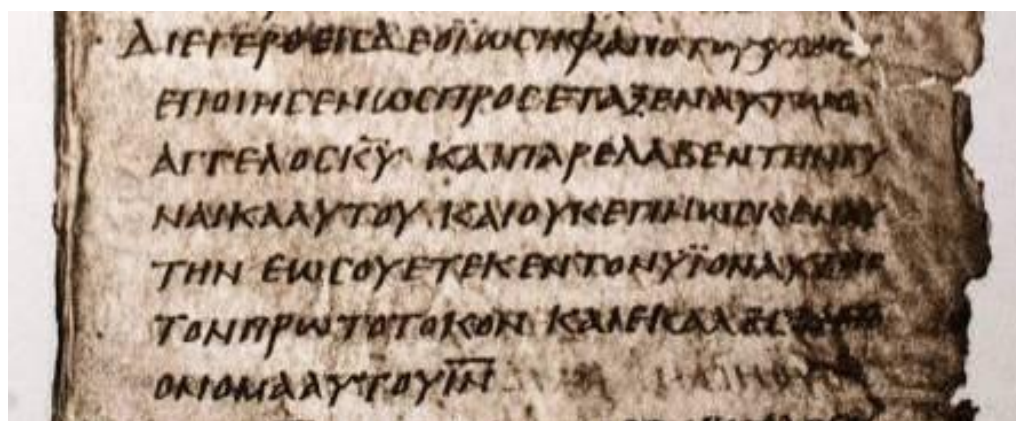 ΔΙΕΓΕΡΘΕΙΣΔΕΟΪΩΣΗΦΑΠΟΤΟΥΥΠΝΟΥ
ΕΠΟΙΗΣΕΝΩΣΠΡΟΣΕΤΑΞΕΝΑΥΤΩΟ
ΑΓΓΕΛΟΣΚ̅Υ̅ ΚΑΙΠΑΡΕΛΑΒΕΝΤΗΝΓΥ
ΝΑΙΚΑΑΥΤΟΥ ΚΑΙΟΥΚΕΓΙΝΩΣΚΕΝΑΥ
ΤΗΝ ΕΩΣΟΥΕΤΕΚΕΝΤΟΝΥΪΟΝΑΥΤΗΣ
ΤΟΝΠΡΩΤΟΤΟΚΟΝ ΚΑΙΕΚΑΛΕΣΕΝ
ΟΝΟΜΑΑΥΤΟΥΙ̅Ν̅